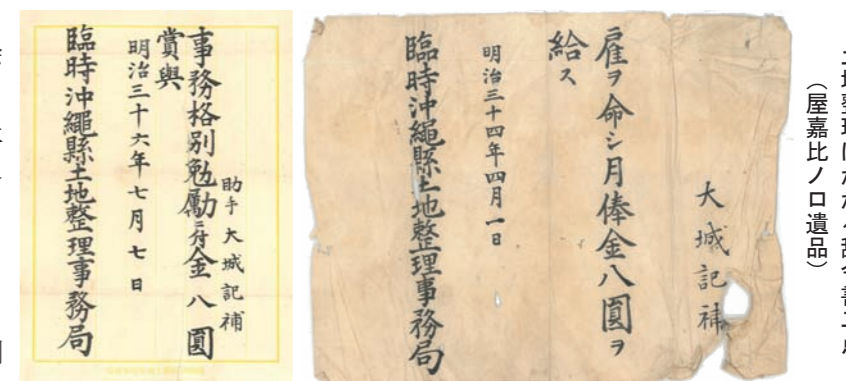 土地整理にかかる辞令書二点
（屋嘉比ノロ遺品）
大城記補
雇ヲ命シ月俸金八圓ヲ
給ス
明治三十四年四月一日
臨時沖繩縣土地整理事務局
助手 大城記補
事務格別勉勵ニ付金八圓
賞與
明治三十六年七月七日
臨時沖繩縣土地整理事務局